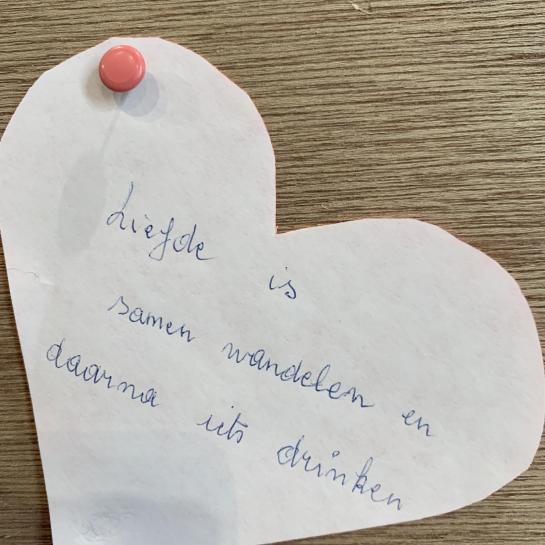 Liefde is
samen wandelen en
daarna iets drinken